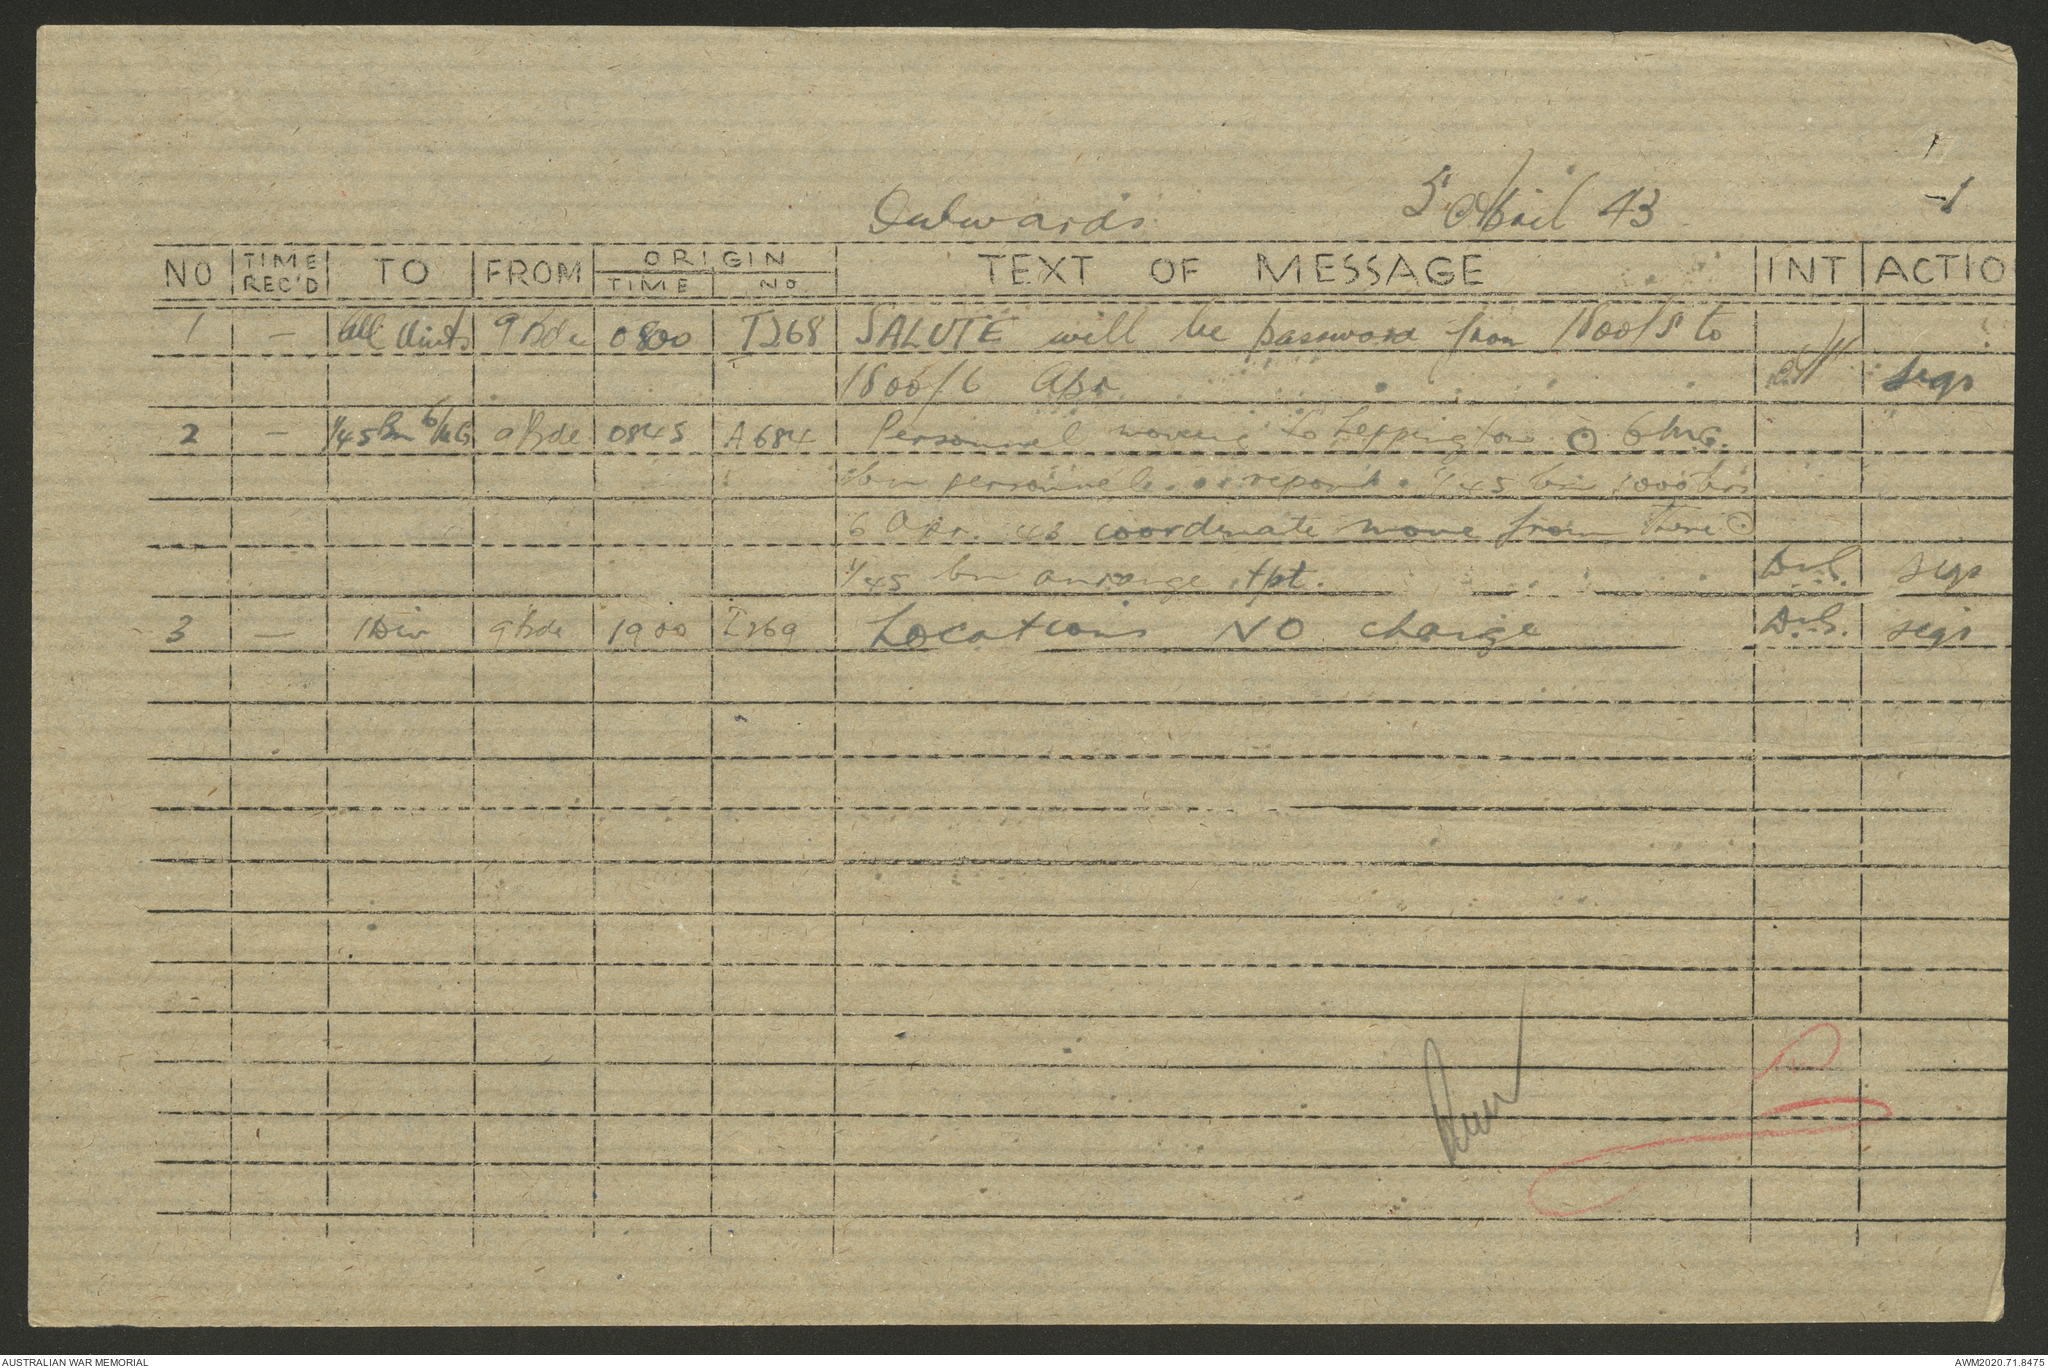 Outwards 5 April 43 -1
NO TIME REC'D TO FROM ORIGIN TIME NO TEXT OF MESSAGE INT ACTIO
1 — All Units 9 Bde 0800 I268 SALUTE will be password from 1800/5 to
1800/6 Apr sigs
2 — 1/45 Bn 6/MG 9 Bde 0845 A684 Personnel moving to Leppington ⊙ 6 MG.
bn personnel report 1/45 bn 1000 hrs
6 Apr. 43 coordinate move from there ⊙
1/45 bn arrange tpt. sigs
3 — 1 Div 9 Bde 1900 I269 Locations NO change sigs
AUSTRALIAN WAR MEMORIAL AWM2020.71.8475